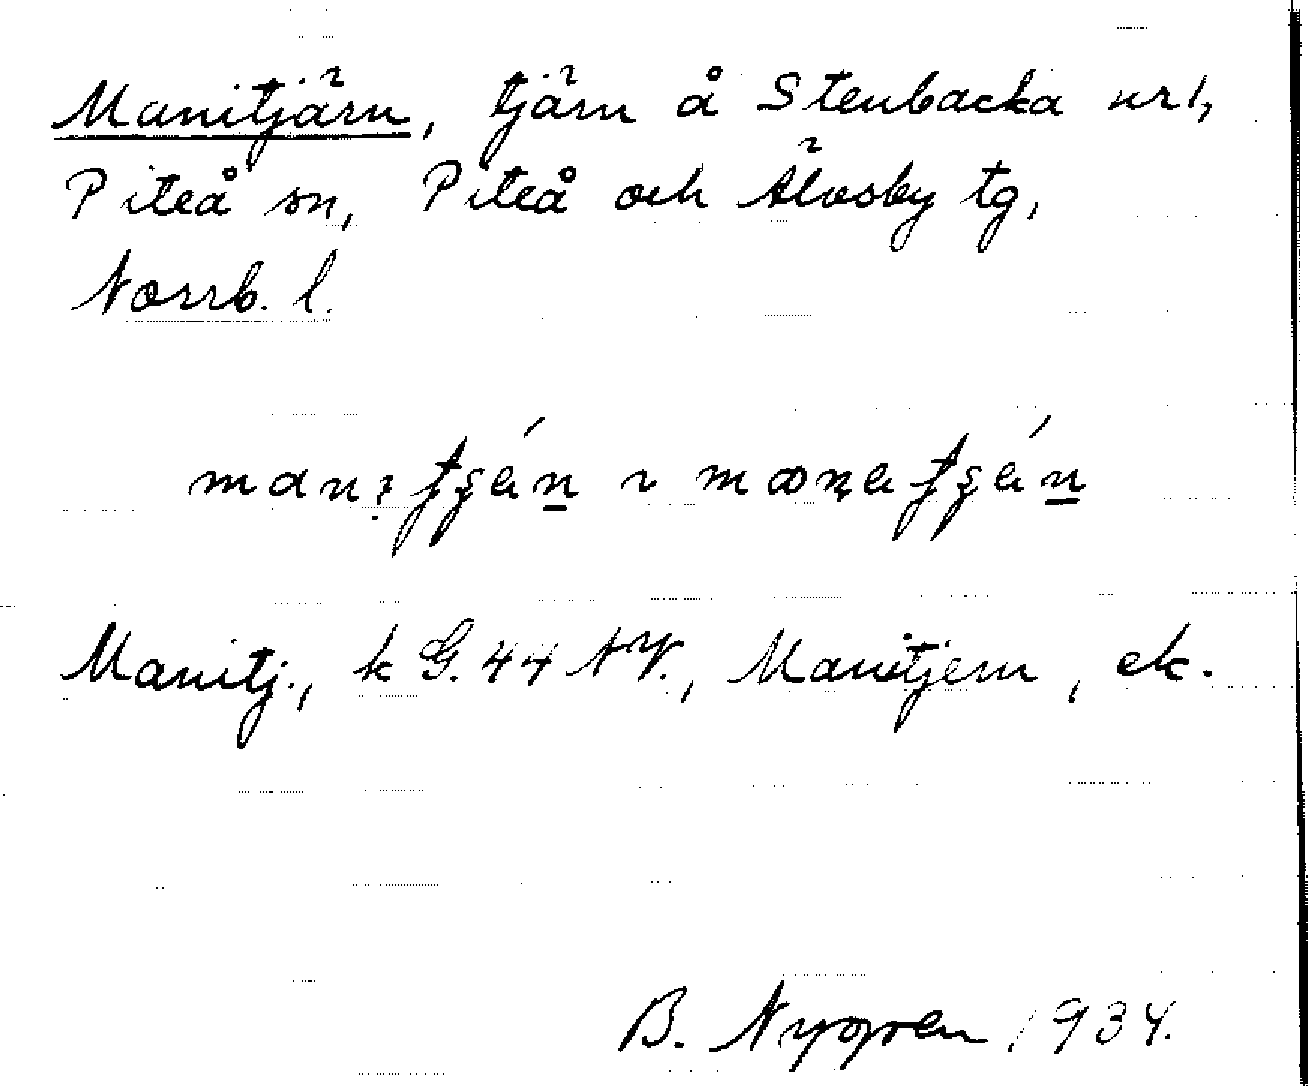 Manitjärn, tjärn å Stenbacka nr 1,
Piteå sn, Piteå och Älvsby tg,
Norrb. l.
Manitj., k G. 44 NV., Manitjern, ek.
B. Nygren 1934.